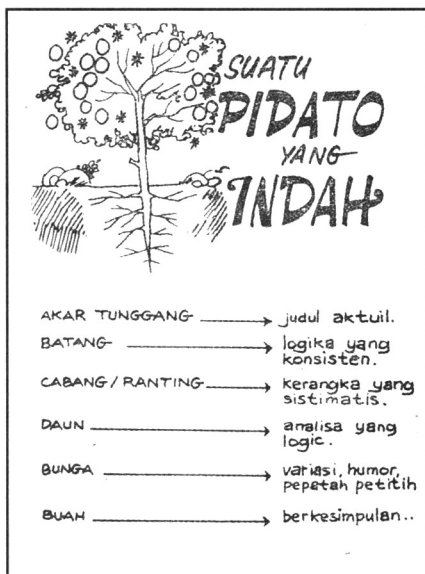 SUATU
PIDATO
YANG
INDAH
AKAR TUNGGANG → judul aktuil.
BATANG → logika yang
konsisten.
CABANG/RANTING → kerangka yang
sistimatis.
DAUN → analisa yang
logic.
BUNGA → variasi, humor,
pepatah petitih
BUAH → berkesimpulan..